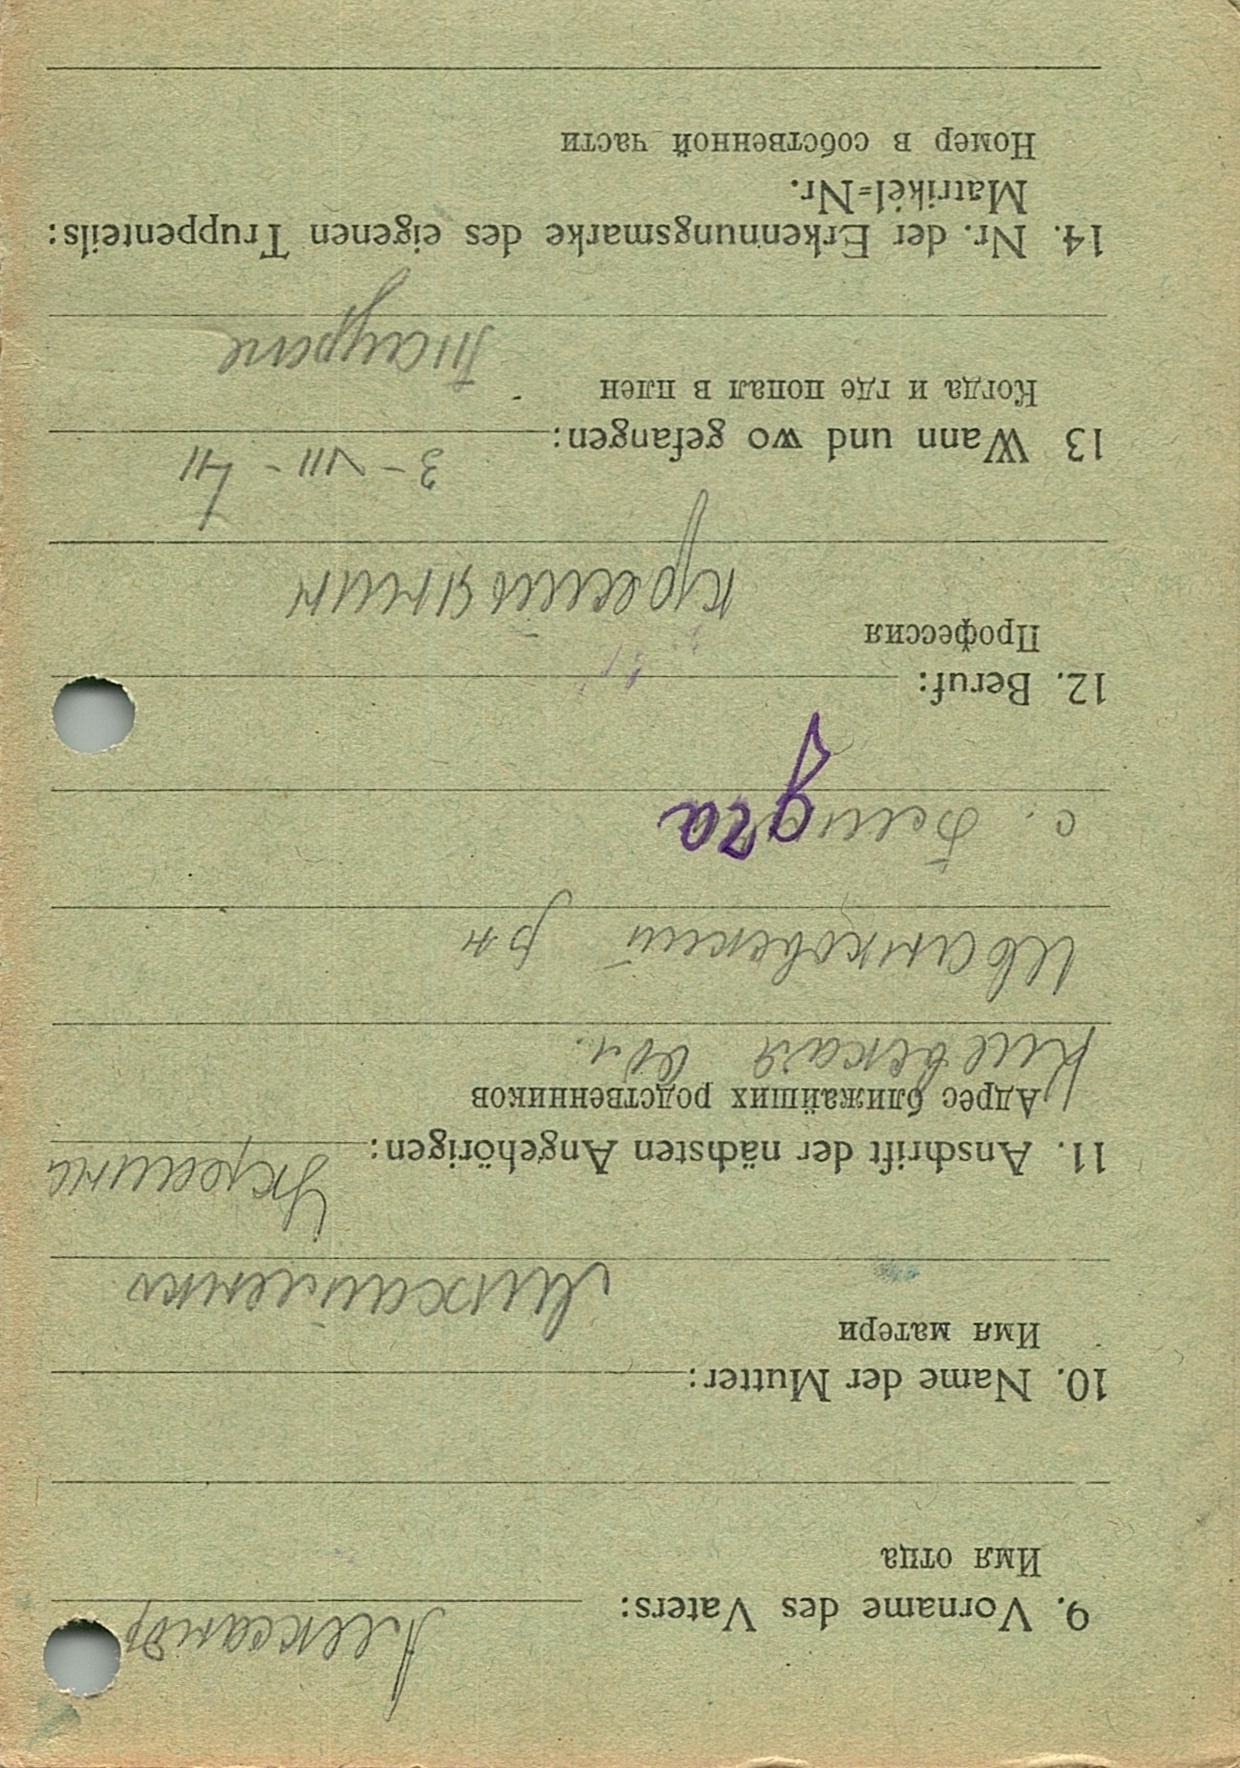 9. Vorname des Vaters: Александр
Имя отца
10. Name der Mutter:
Имя матери
Михайленко
11. Anschrift der nächsten Angehörigen: Украина
Адрес ближайших родственников
Киевская обл.
Иванковский р-н
с.
12. Beruf:
Профессия
крестьянин
13 Wann und wo gefangen: 3-VII-41
Когда и где попал в плен
Таураге
14. Nr. der Erkennungsmarke des eigenen Truppenteils:
Matrikel=Nr.
Номер в собственной части